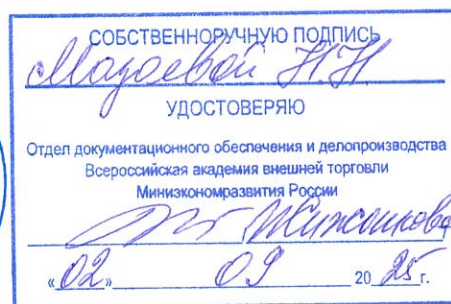 СОБСТВЕННОРУЧНУЮ ПОДПИСЬ
Мазоевой Н.Н
УДОСТОВЕРЯЮ
Отдел документационного обеспечения и делопроизводства
Всероссийская академия внешней торговли
Минэкономразвития России
«02» 09 2025 г.